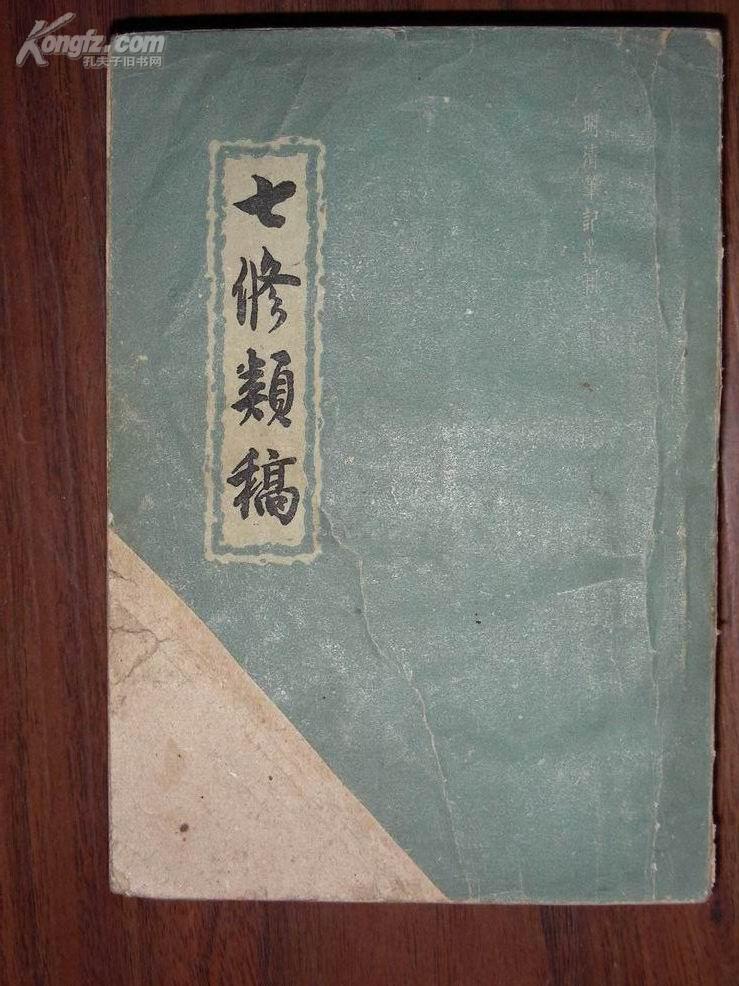 Kongfz.com
孔夫子旧书网
明清筆記叢刊
七修類稿